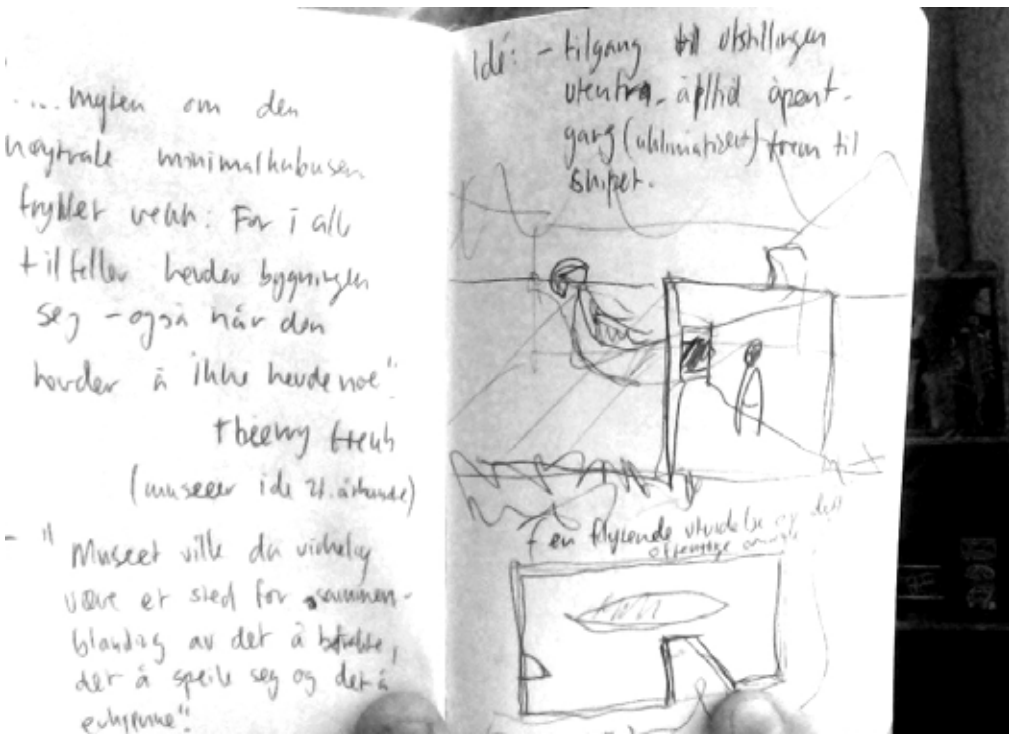 .... myten om den
nøytrale minimalkubusen
trykker vekk: For i alle
tilfeller hevder bygningen
seg - også når den
hevder å ikke hevde noe"
(museer i det 21. århundre)
- " Museet ville da virkelig
være et sted for sammen-
blanding av det å betrakte,
det å speile seg og det å
erkjenne".
Idé: - tilgang til utstillingen
utenfra - alltid åpent -
gang (uklimatisert) frem til
skipet.
en flytende utvidelse og det
offentlige